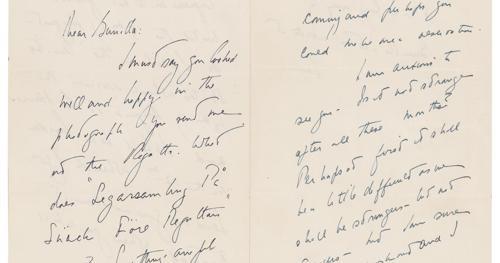 Dear Gunilla:
I must say you looked
well and happy in the
photograph you send me
at "the Regatta. What
does "Segarsamling På
Snäck Före Regattan"
? Something awful
coming and perhaps you
could make me a reservation.
I am anxious to
see you - Is it not strange
after all these months?
Perhaps at first I shall
be a little diffident as we
shall be strangers - but not
- but I am sure
and I